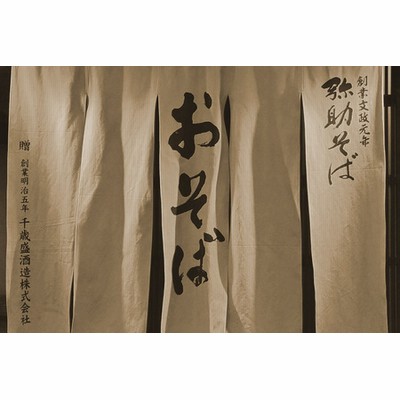 創業文政元年
弥助そば
おそば
贈 創業明治五年 千歳盛酒造株式会社